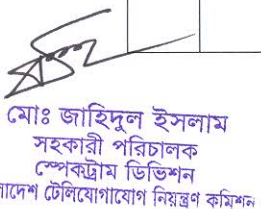 মোঃ জাহিদুল ইসলাম
সহকারী পরিচালক
স্পেকট্রাম ডিভিশন
লাদেশ টেলিযোগাযোগ নিয়ন্ত্রণ কমিশন